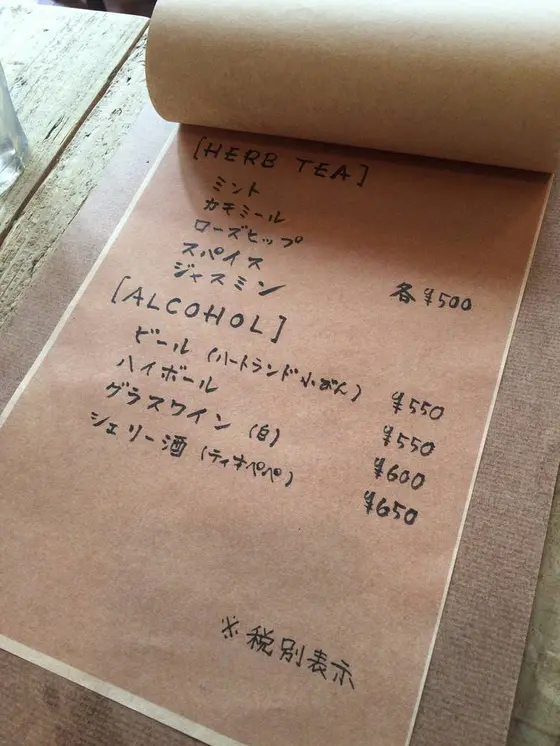 [HERB TEA]
ミント
カモミール
ローズヒップ
スパイス
ジャスミン 各¥500
[ALCOHOL]
ビール (ハートランド小びん) ¥550
ハイボール ¥550
グラスワイン (白) ¥600
シェリー酒 (ティオペペ) ¥650
※税別表示